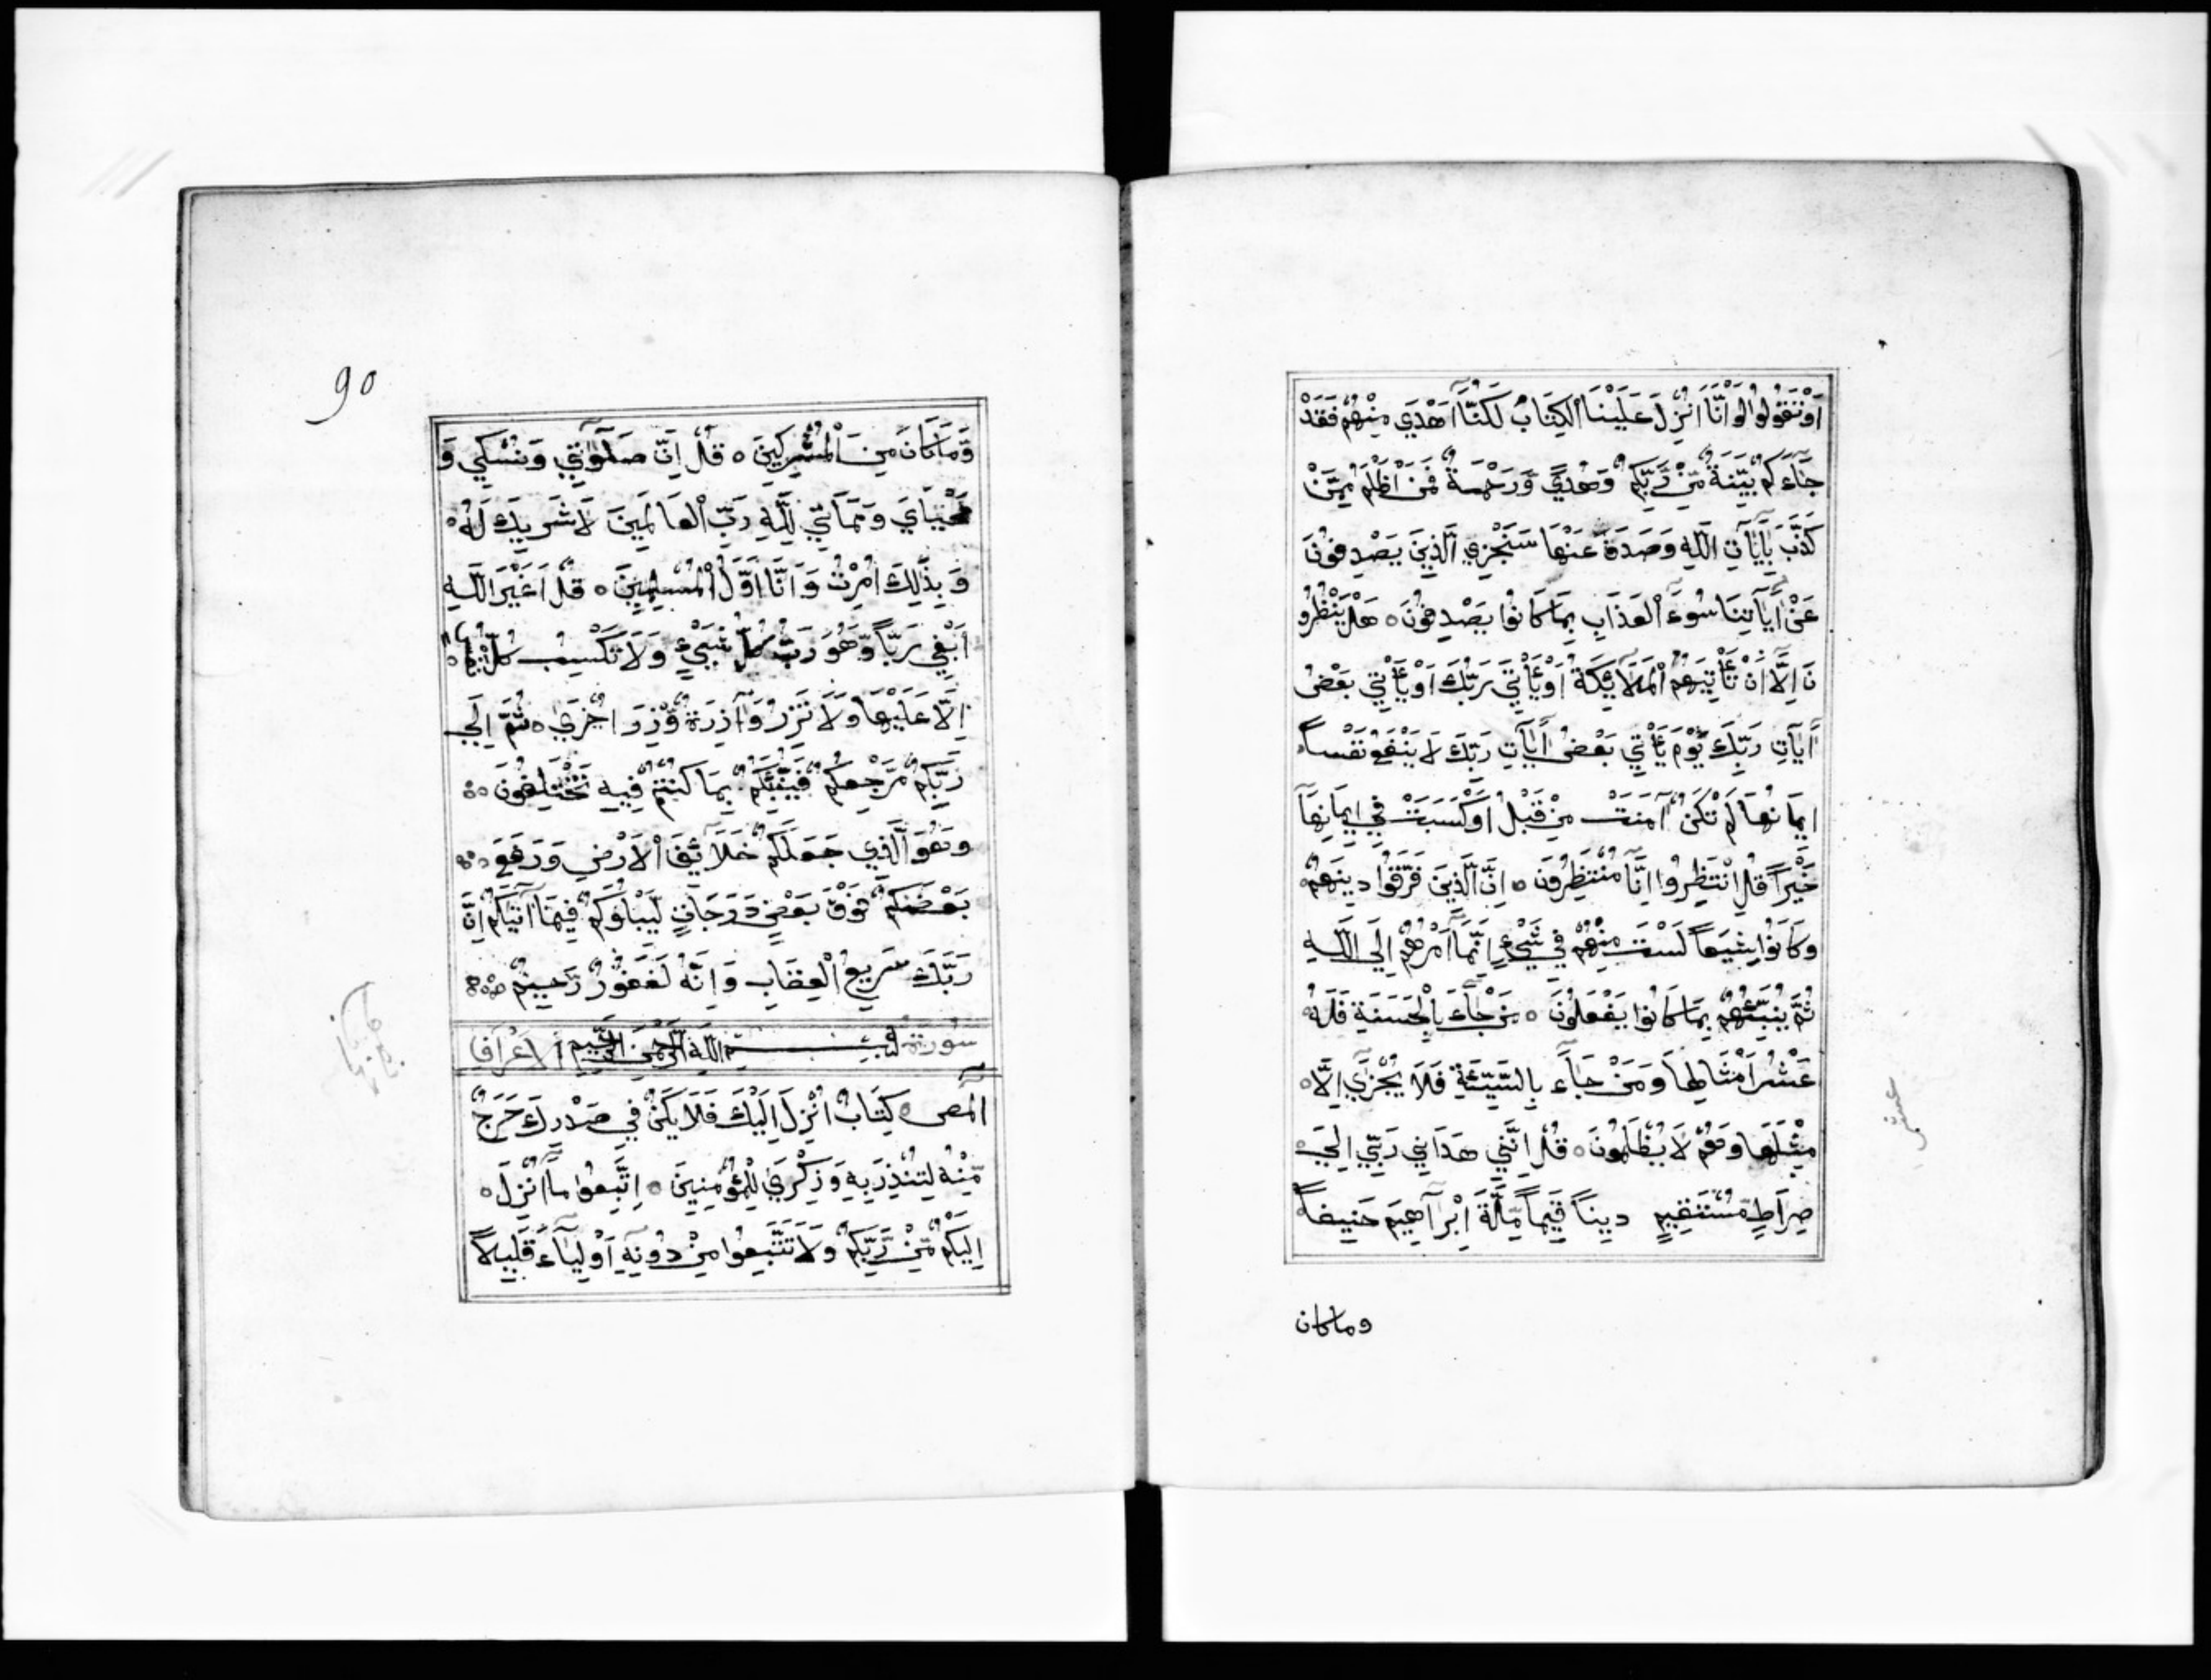 اَوْ تَقُولُوا لَوْ اَنَّا اُنْزِلَ عَلَيْنَا الْكِتَابُ لَكُنَّا اَهْدَي مِنْهُمْ فَقَدْ
جَاءَكُمْ بَيِّنَةٌ مِّنْ رَّبِّكُمْ وَهُدًي وَرَحْمَةٌ فَمَنْ اَظْلَمُ مِمَّنْ
كَذَّبَ بِاٰيَاتِ اللَّهِ وَصَدَفَ عَنْهَا سَنَجْزِي الَّذِينَ يَصْدِفُونَ
عَنْ اٰيَاتِنَا سُوءَ الْعَذَابِ بِمَا كَانُوا يَصْدِفُونَ ه هَلْ يَنْظُرُو
نَ اِلَّا اَنْ تَأْتِيَهُمُ الْمَلَائِكَةُ اَوْ يَأْتِيَ رَبُّكَ اَوْ يَأْتِيَ بَعْضُ
اٰيَاتِ رَبِّكَ يَوْمَ يَأْتِي بَعْضُ اٰيَاتِ رَبِّكَ لَا يَنْفَعُ نَفْساً
اِيمَانُهَا لَمْ تَكُنْ اٰمَنَتْ مِنْ قَبْلُ اَوْ كَسَبَتْ فِي اِيمَانِهَا
خَيْراً قُلِ انْتَظِرُوا اِنَّا مُنْتَظِرُونَ ه اِنَّ الَّذِينَ فَرَّقُوا دِينَهُمْ
وَكَانُوا شِيَعاً لَسْتَ مِنْهُمْ فِي شَيْءٍ اِنَّمَا اَمْرُهُمْ اِلَي اللَّهِ
ثُمَّ يُنَبِّئُهُمْ بِمَا كَانُوا يَفْعَلُونَ ه مَنْ جَاءَ بِالْحَسَنَةِ فَلَهُ
عَشْرُ اَمْثَالِهَا وَمَنْ جَاءَ بِالسَّيِّئَةِ فَلَا يُجْزَي اِلَّا ه
مِثْلَهَا وَهُمْ لَا يُظْلَمُونَ ه قُلْ اِنَّنِي هَدَانِي رَبِّي اِلَي
صِرَاطٍ مُّسْتَقِيمٍ دِيناً قِيَماً مِّلَّةَ اِبْرَاهِيمَ حَنِيفاً
وماكان
عشر
90
وَّمَا كَانَ مِنَ الْمُشْرِكِينَ ه قُلْ اِنَّ صَلٰوتِي وَنُسُكِي وَ
مَحْيَايَ وَمَمَاتِي لِلَّهِ رَبِّ الْعَالَمِينَ لَا شَرِيكَ لَهُ ه
وَبِذَٰلِكَ اُمِرْتُ وَاَنَا اَوَّلُ الْمُسْلِمِينَ ه قُلْ اَغَيْرَ اللَّهِ
اَبْغِي رَبّاً وَّهُوَ رَبُّ كُلِّ شَيْءٍ وَلَا تَكْسِبُ كُلُّ
اِلَّا عَلَيْهَا وَلَا تَزِرُ وَازِرَةٌ وِّزْرَ اُخْرَي ه ثُمَّ اِلَي
رَبِّكُمْ مَّرْجِعُكُمْ فَيُنَبِّئُكُمْ بِمَا كُنْتُمْ فِيهِ تَخْتَلِفُونَ ه
وَهُوَ الَّذِي جَعَلَكُمْ خَلَائِفَ الْاَرْضِ وَرَفَعَ ه
بَعْضَكُمْ فَوْقَ بَعْضٍ دَرَجَاتٍ لِّيَبْلُوَكُمْ فِيمَا اٰتٰيكُمْ اِنَّ
رَبَّكَ سَرِيعُ الْعِقَابِ وَاِنَّهُ لَغَفُورٌ رَّحِيمٌ ه
سُورَةُ بِسْمِ اللَّهِ الرَّحْمٰنِ الرَّحِيمِ الْاَعْرَاف
الٓمص ه كِتَابٌ اُنْزِلَ اِلَيْكَ فَلَا يَكُنْ فِي صَدْرِكَ حَرَجٌ
مِّنْهُ لِتُنْذِرَ بِهِ وَذِكْرَي لِلْمُؤْمِنِينَ ه اِتَّبِعُوا مَا اُنْزِلَ ه
اِلَيْكُمْ مِّنْ رَّبِّكُمْ وَلَا تَتَّبِعُوا مِنْ دُونِهِ اَوْلِيَاءَ قَلِيلاً